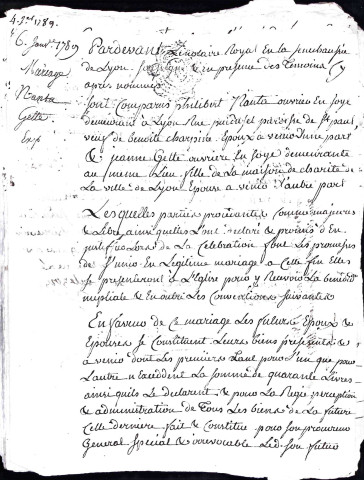 6 Janv. 1789
Mariage
Nanta
Gette
Exp
Pardevant Le notaire Royal En la Senechaussée
de Lyon soussigné & En presence des temoins cy
après nommés
Sont Comparus philibert Nanta ouvrier En soye
demeurant a Lyon Rue paroisse de St paul
veuf de benoite Epoux a venir d'une part
& jeanne Gette ouvriere En soye demeurante
au meme Lieu fille de La maison de charité de
La ville de Lyon Epouse a venir d'autre part
Lesquelles parties procedantes Comme majeures
& Libres ainsy qu'elles l'ont declaré & promis d'En
justifier Lors de La Celebration font les promesses
de S'unir En Légitime mariage a Cette fin Elles
se presenteront a L'Eglise pour y Recevoir La bénédn
nuptiale & En outre Les Conventions suivantes
En faveur de Ce mariage Les futurs Epoux &
Epouse se Constituent Leurs biens presents &
a venir dont Les premiers tant pour l'un que pour
L'autre n'excedent La somme de quarante Livres
ainsi qu'ils Le declarent, & pour La Regie perception
& administration de Tous Les biens de La future
Cette derniere fait & Constitue pour Son procureur
General Special & irrevocable Led. Son futur